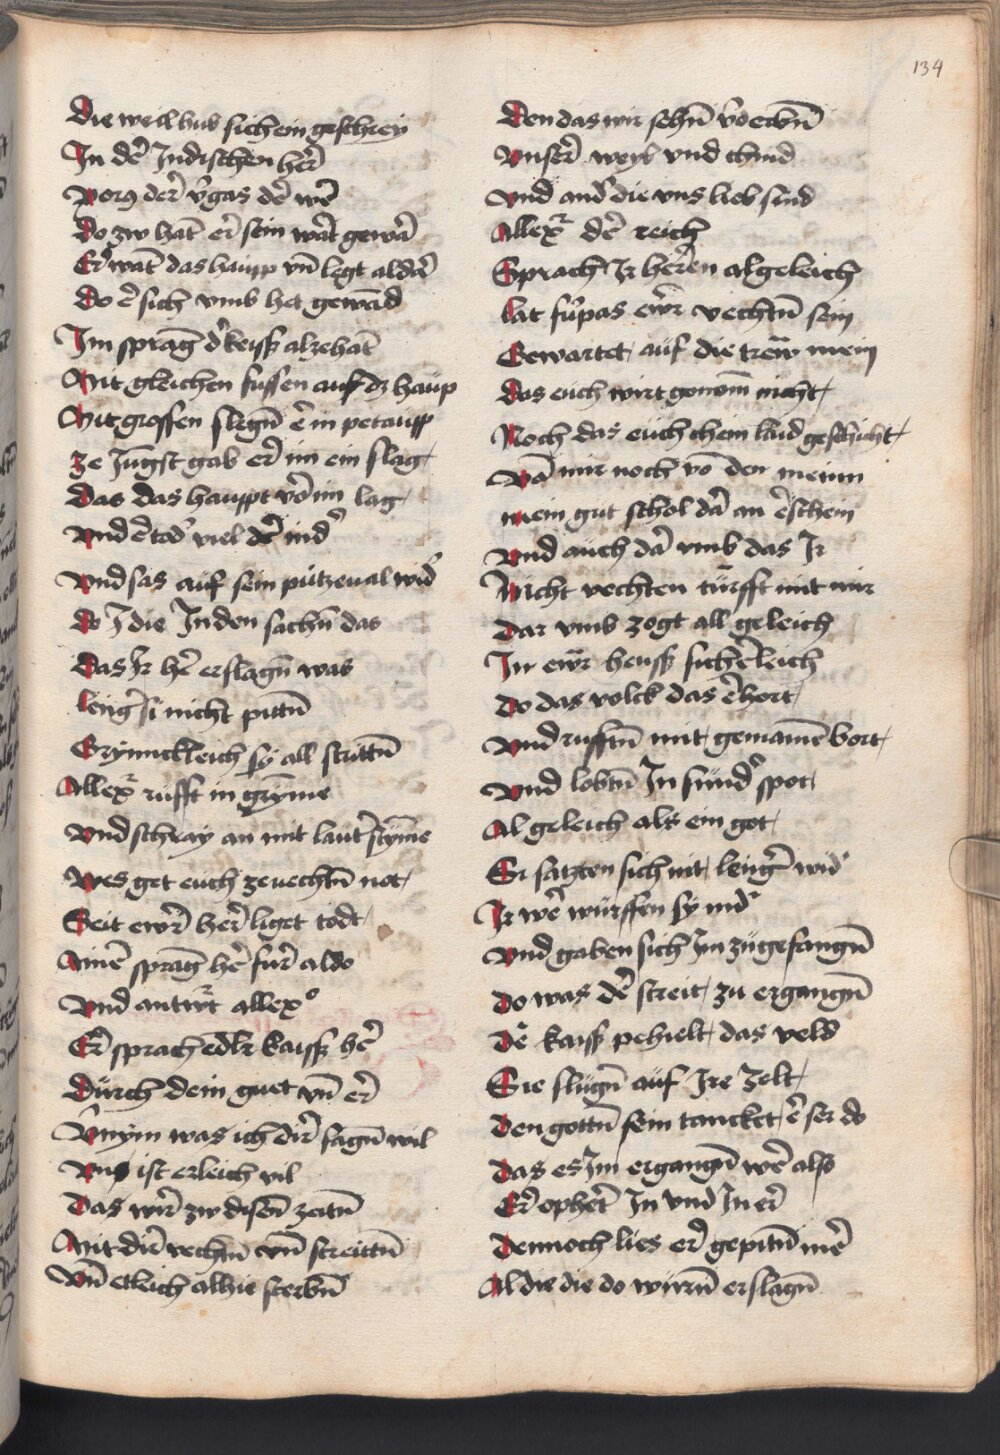 134
Die weil hub sich ein geschrey
In de᷑ Indischen he᷑r
Porꝯ der v᷑gas de᷑ we᷑
Do zw hat er sein wa᷑t gewa᷑
Er wāt das haupp vn̄ legt alda᷑
Do e᷑ sich vmb het gewād
Im sprāg d᷑ keiss᷑ alzehāt
Mit gleichen fussen auf dz haup
Mit grossen slegn̄ e᷑ in petaupp
ze Jungst gab er im ein slag
Das das hauppt vō im lag
Vnd e᷑ tod viel de᷑ nid᷑
Vnd sas auf sein putzeual wid᷑
Do die Inden sachn̄ das
Das Ir he᷑ erslagn̄ was
leng᷑ si nicht pittn̄
Grymickleich sy all strittn̄
Allex᷑ rufft in grȳme
Vnd schray an mit laut᷑ stȳme
Wes get euch zeuechtn̄ not
Seit ewr᷑ her᷑ liget todt
Aine᷑ sprāg he᷑ fur᷑ aldo
Vnd antwrt᷑ allexͦ
Er sprach edlr kaiss᷑ he᷑
Durch dein guet vn̄ er᷑
V᷑nym was ich dir᷑ sagn̄ wil
Vns ist erleich vil
Das wir᷑ zw disen̄ zeitn̄
Mit dir᷑ vechtn̄ vn̄ streittn̄
Vn̄ etleich alhie sterbn̄
Den das wir sehn̄ v᷑derbn̄
Vnser᷑ weyb vnd chind
Vnd and᷑ die vns lieb sind
Allex᷑ de᷑ reich
Sprach Ir he᷑ren algeleich
lat fu᷑pas ewr᷑ vechtn̄ sein
Gewartet auf die trew mein
Das euch wirt genom̄ nicht
Noch das euch chein laid geschicht
Vō mir noch vō den meinn
mein gut schol da᷑ an e᷑schein
Vnd auch da᷑ vmb das Ir
Nicht vechten türfft mit mir
Dar vmb zogt all geleich
In ewr᷑ heuss᷑ siche᷑leich
Do das volck das e᷑hort
Vnd rufftn̄ mit gemaine᷑ bort
Vnd lobtn̄ In sund᷑ spot
Al geleich als ein got
Si satzten sich nit leng᷑ wid᷑
Ir we᷑ würffen sy nid᷑
Vnd gaben sich Im zu gefangn̄
Do was de᷑ streit zu ergangn̄
De᷑ kaiss᷑ pehielt das veld
Sie slugn̄ auf Ire zelt
Den gottn̄ sein tancket e᷑ ser do
Das es Im ergangn̄ we᷑ also
Er ophert᷑ In vnd In er᷑
Dennoch lies er gepitn̄ me᷑
Al die die do wurn̄ erslagn̄